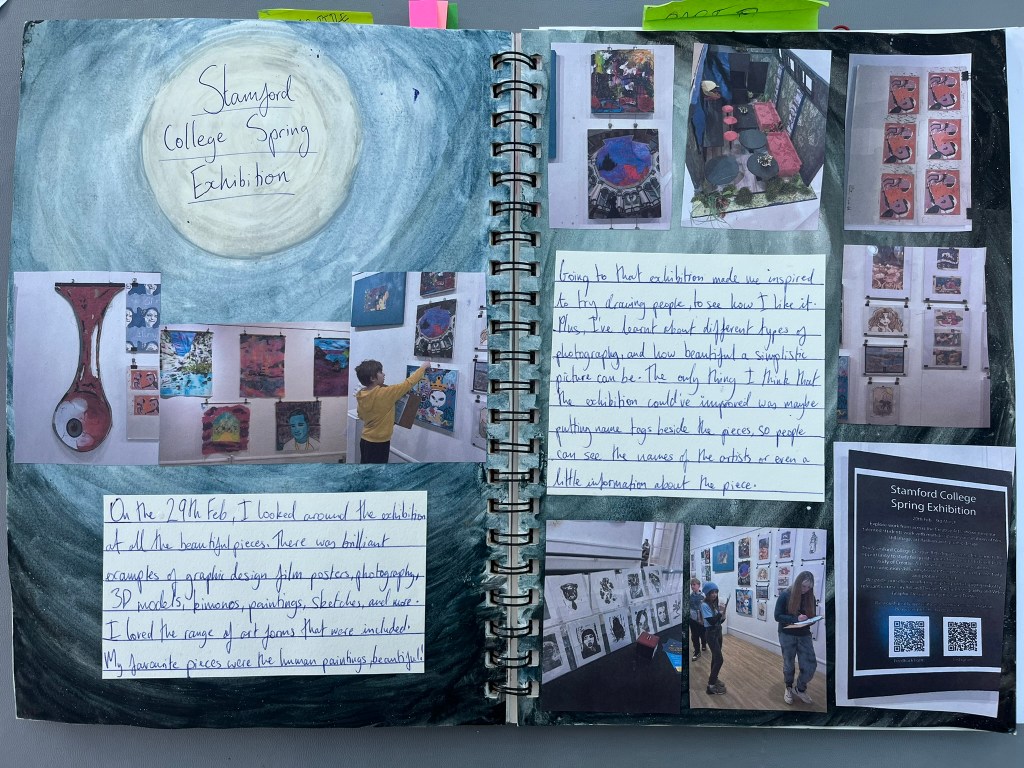 Stamford
College Spring
Exhibition
On the 29th Feb, I looked around the exhibition
at all the beautiful pieces. There was brilliant
examples of graphic design film posters, photography,
3D models, kimonos, paintings, sketches, and more.
I loved the range of art forms that were included.
My favourite pieces were the human paintings, beautiful!
Going to that exhibition made me inspired
to try drawing people, to see how I like it.
Plus, I've learnt about different types of
photography, and how beautiful a simplistic
picture can be. The only thing I think that
the exhibition could've improved was maybe
putting name tags beside the pieces, so people
can see the names of the artists or even a
little information about the piece.
Stamford College
Spring Exhibition